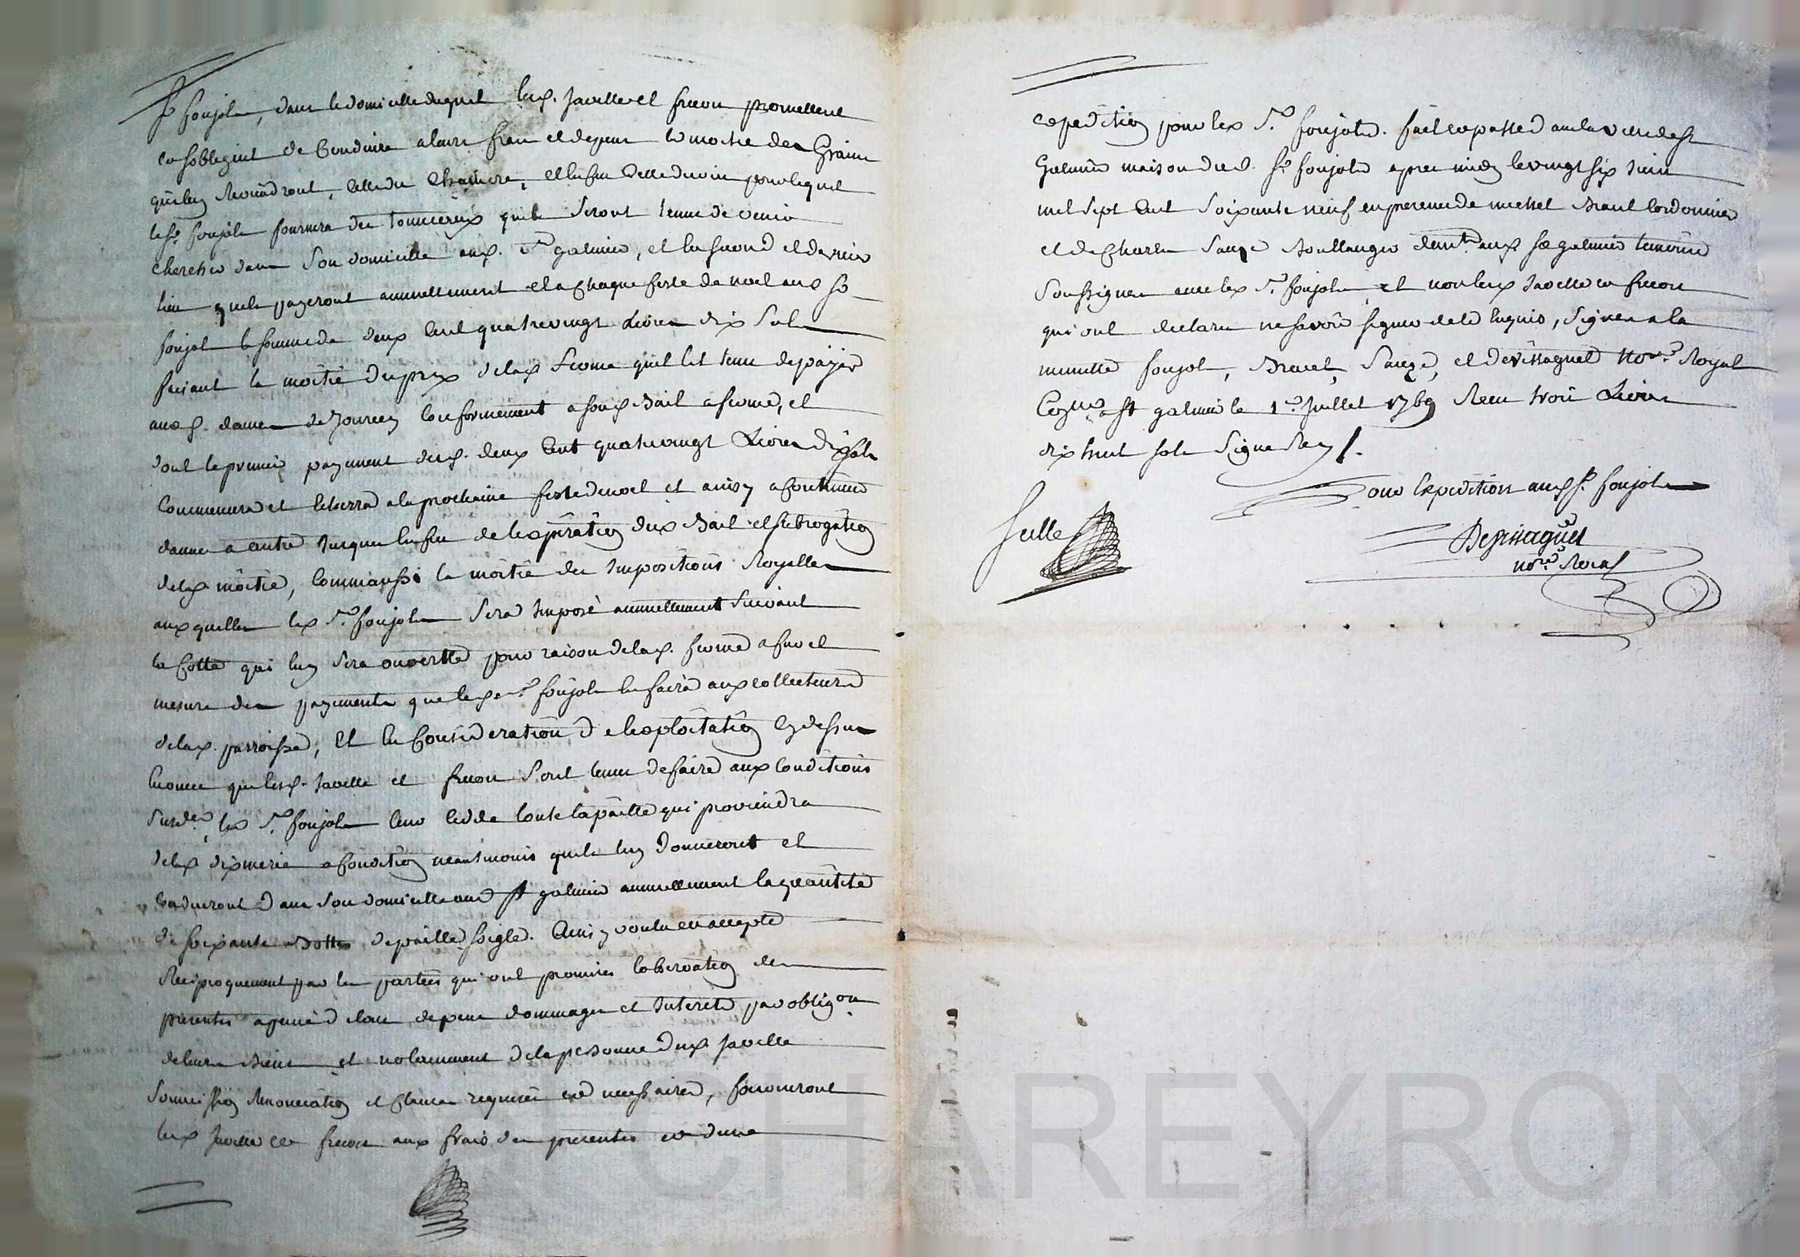 Sr foujols, dans le domicille duquel lesd. Javelle et frecon promettent
et sobligent de Conduire a leurs frais et depens la moitié des Grains
quils Recueudront, celle du Chanvre, et enfin celle du vin pour lequel
led Sr foujols fournira des tonneaux quils seront tenus de venir
chercher dans son domicille aud. St galmier, et en second et dernier
lieu quils payeront annuellement et a Chaque feste de noel aud Sr
foujols la somme de deux Cent quatrevingt Livres dix Sols
faisant la moitié du prix de lad. ferme quil est tenu de payer
auxd. dames de Jourcey Conformement a sond. Bail a ferme, et
dont le premier payement desd. deux Cent quatrevingt Livres dix sols
Commencera et echerra a la prochaine feste de noel et ainsy a Continuer
dannée a autre jusques en fin de lexpiration dud Bail et subrogation
de lad. moitié, Comm'aussi la moitié des Impositions Royalles
auxquelles led. Sr. foujols sera Imposé annuellement suivant
la Cotte qui luy sera ouverte pour raison de lad. ferme a fur et
mesure des payements que led. Sr. foujols en faira aux collecteurs
de lad. parroisse, Et en Consideration de lexploitation Cy dessus
enoncée que lesd. Javelle et frecon sont tenus de faire aux Conditions
susd., led. Sr. foujols leur cedde toute la paille qui proviendra
de lad. dixmerie a Condition neantmoins quils luy donneront et
Conduiront dans son domicille aud St galmier annuellement la quantité
de soixante Bottes de paille seigle. Ainsy voulu et accepté
Reciproquement par les parties qui ont promis lobservation des
presentes a peine de tous depens dommages et Interets par obligon
de leurs Biens et notamment de la personne dud. Javelle
Soumission Renonciation et Clauses requises et necessaires, fourniront
lesd. Javelle et frecon aux frais des presentes et dune
expedition pour led. Sr. foujols. fait et passé aud. la ville de St
Galmier maison dud. Sr. foujols apres midy le vingt six juin
mil sept Cent soixante neuf en presence de michel Bruel Cordonnier
et de Charles Sauze Boullanger demts. aud. St galmier temoins
Soussignes avec led. Sr. foujols, et non lesd. Javelle et frecon
qui ont declaré ne savoir signer de ce Enquis, Signés a la
minutte foujols, Bruel, Sauze, et devissaguet Nore. Royal
Coñlé a St galmier le 1er. Juillet 1769 Reçu trois Livres
dix huit sols Signé Rey /.
Pour Expedition aud Sr. foujols
Scellé
Devissaguet
nore. Royal
CHAREYRON